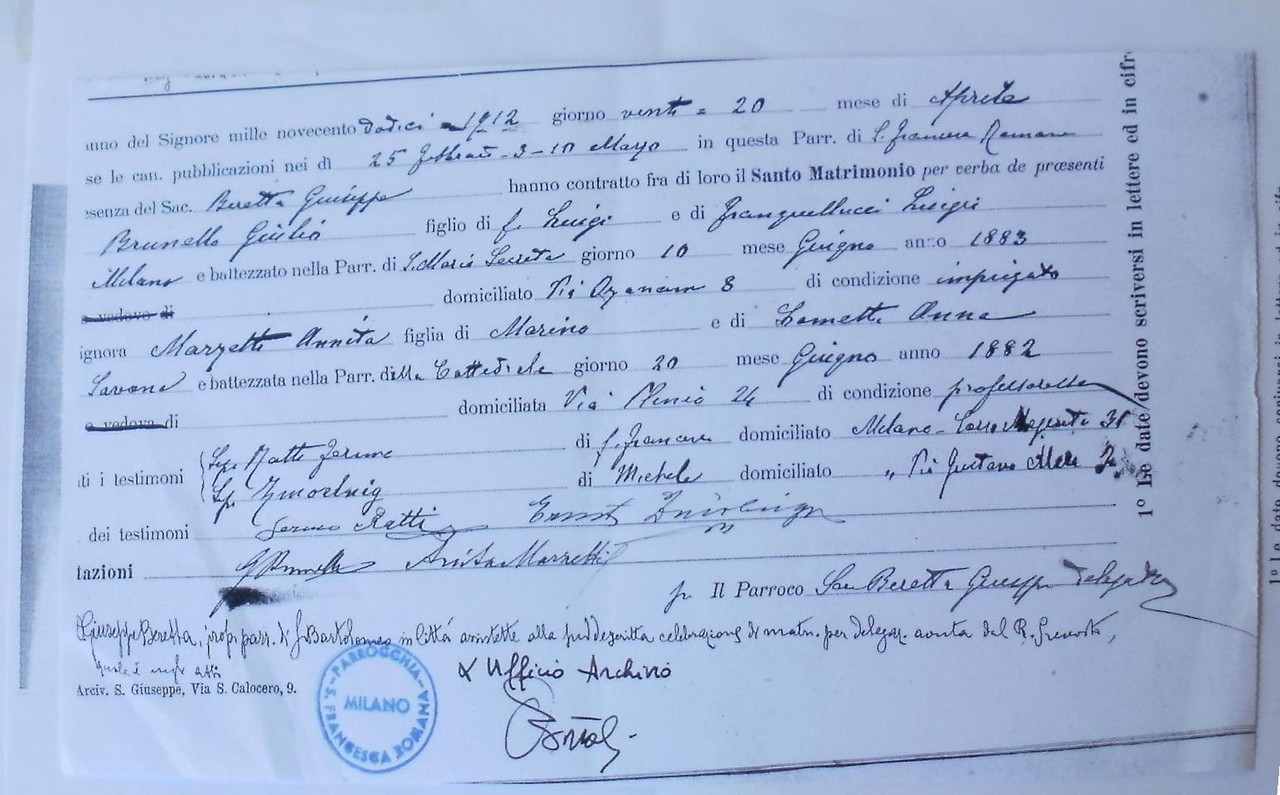 anno del Signore mille novecento dodici = 1912 giorno venti = 20 mese di Aprile
se le can. pubblicazioni nei dì 25 febbraio - 3 - 10 Marzo in questa Parr. di S. Francesca Romana
senza del Sac. Beretta Giuseppe hanno contratto fra di loro il Santo Matrimonio per verba de præsenti
Brunello Giulio figlio di f. Luigi e di Franquellucci Luigia
Milano e battezzato nella Parr. di S. Maria Secreta giorno 10 mese Giugno anno 1883
e vedovo di domiciliato Via Ozanam 8 di condizione impiegato
ignora Marzetti Annita figlia di Marino e di Lometti Anna
Savona e battezzata nella Parr. della Cattedrale giorno 20 mese Giugno anno 1882
e vedova di domiciliata Via Plinio 24 di condizione professoressa
ti i testimoni Ratti di f. Francesco domiciliato Milano - Corso Magenta 31
di Michele domiciliato " Via Gustavo
dei testimoni Ratti Ernst
tazioni GBrunello Anita Marzetti
p. Il Parroco Sac Beretta Giuseppe Delegato
Giuseppe Beretta, parr. di S. Bartolomeo in città assistette alla suddescritta celebrazione di matr. per delegaz. avuta dal R. Prevosto,
quale è negli atti
Arciv. S. Giuseppe, Via S. Calocero, 9.
x Ufficio Archivio
PARROCCHIA S. FRANCESCA ROMANA
MILANO
1° Le date devono scriversi in lettere ed in cifr